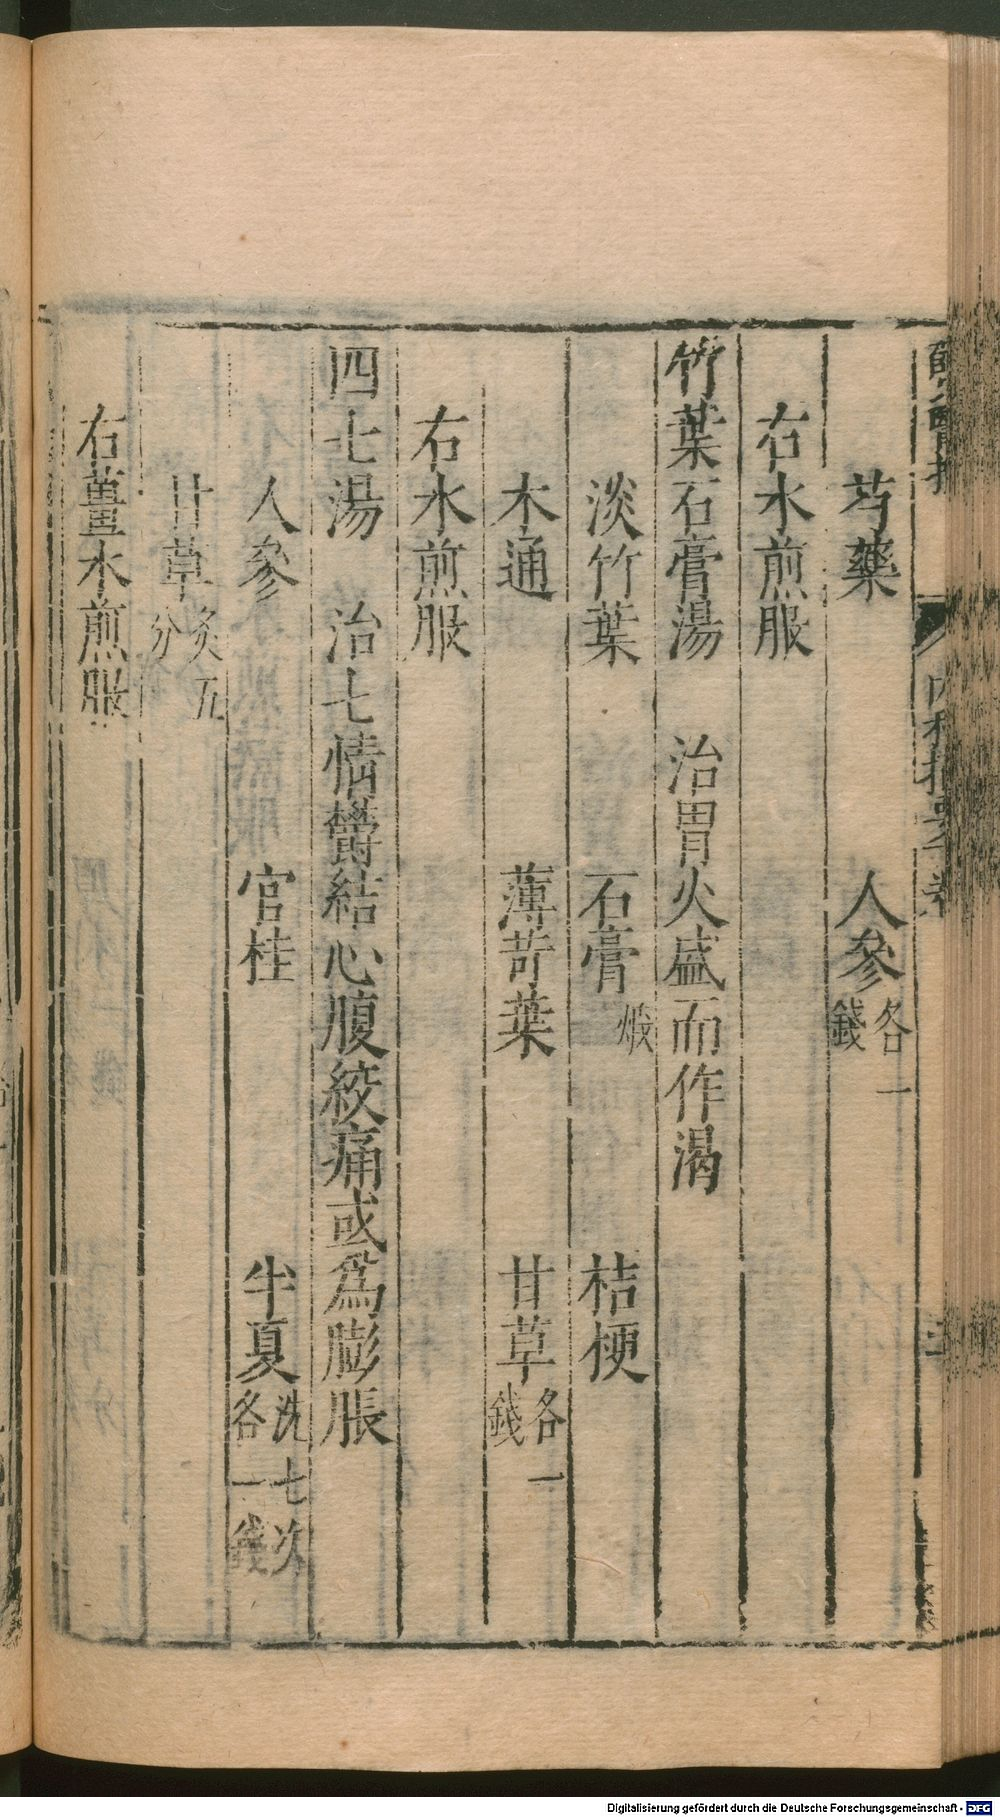 芍藥 人參各一錢
右水煎服
竹葉石膏湯 治胃火盛而作渴
淡竹葉 石膏煅 桔梗
木通 薄苛葉 甘草各一錢
右水煎服
四七湯 治七情欝結心腹絞痛或爲膨脹
人參 官桂 半夏洗七次各一錢
甘草炙五分
右薑水煎服
Digitalisierung gefördert durch die Deutsche Forschungsgemeinschaft - DFG